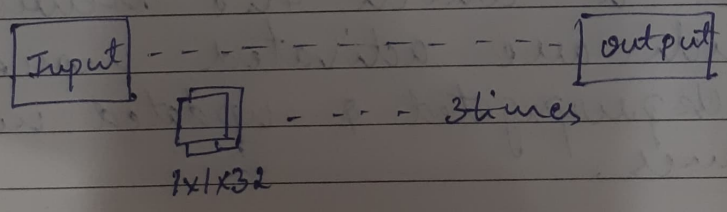 Input - - - - - - - - - - output
- - - - 3times
1x1x32